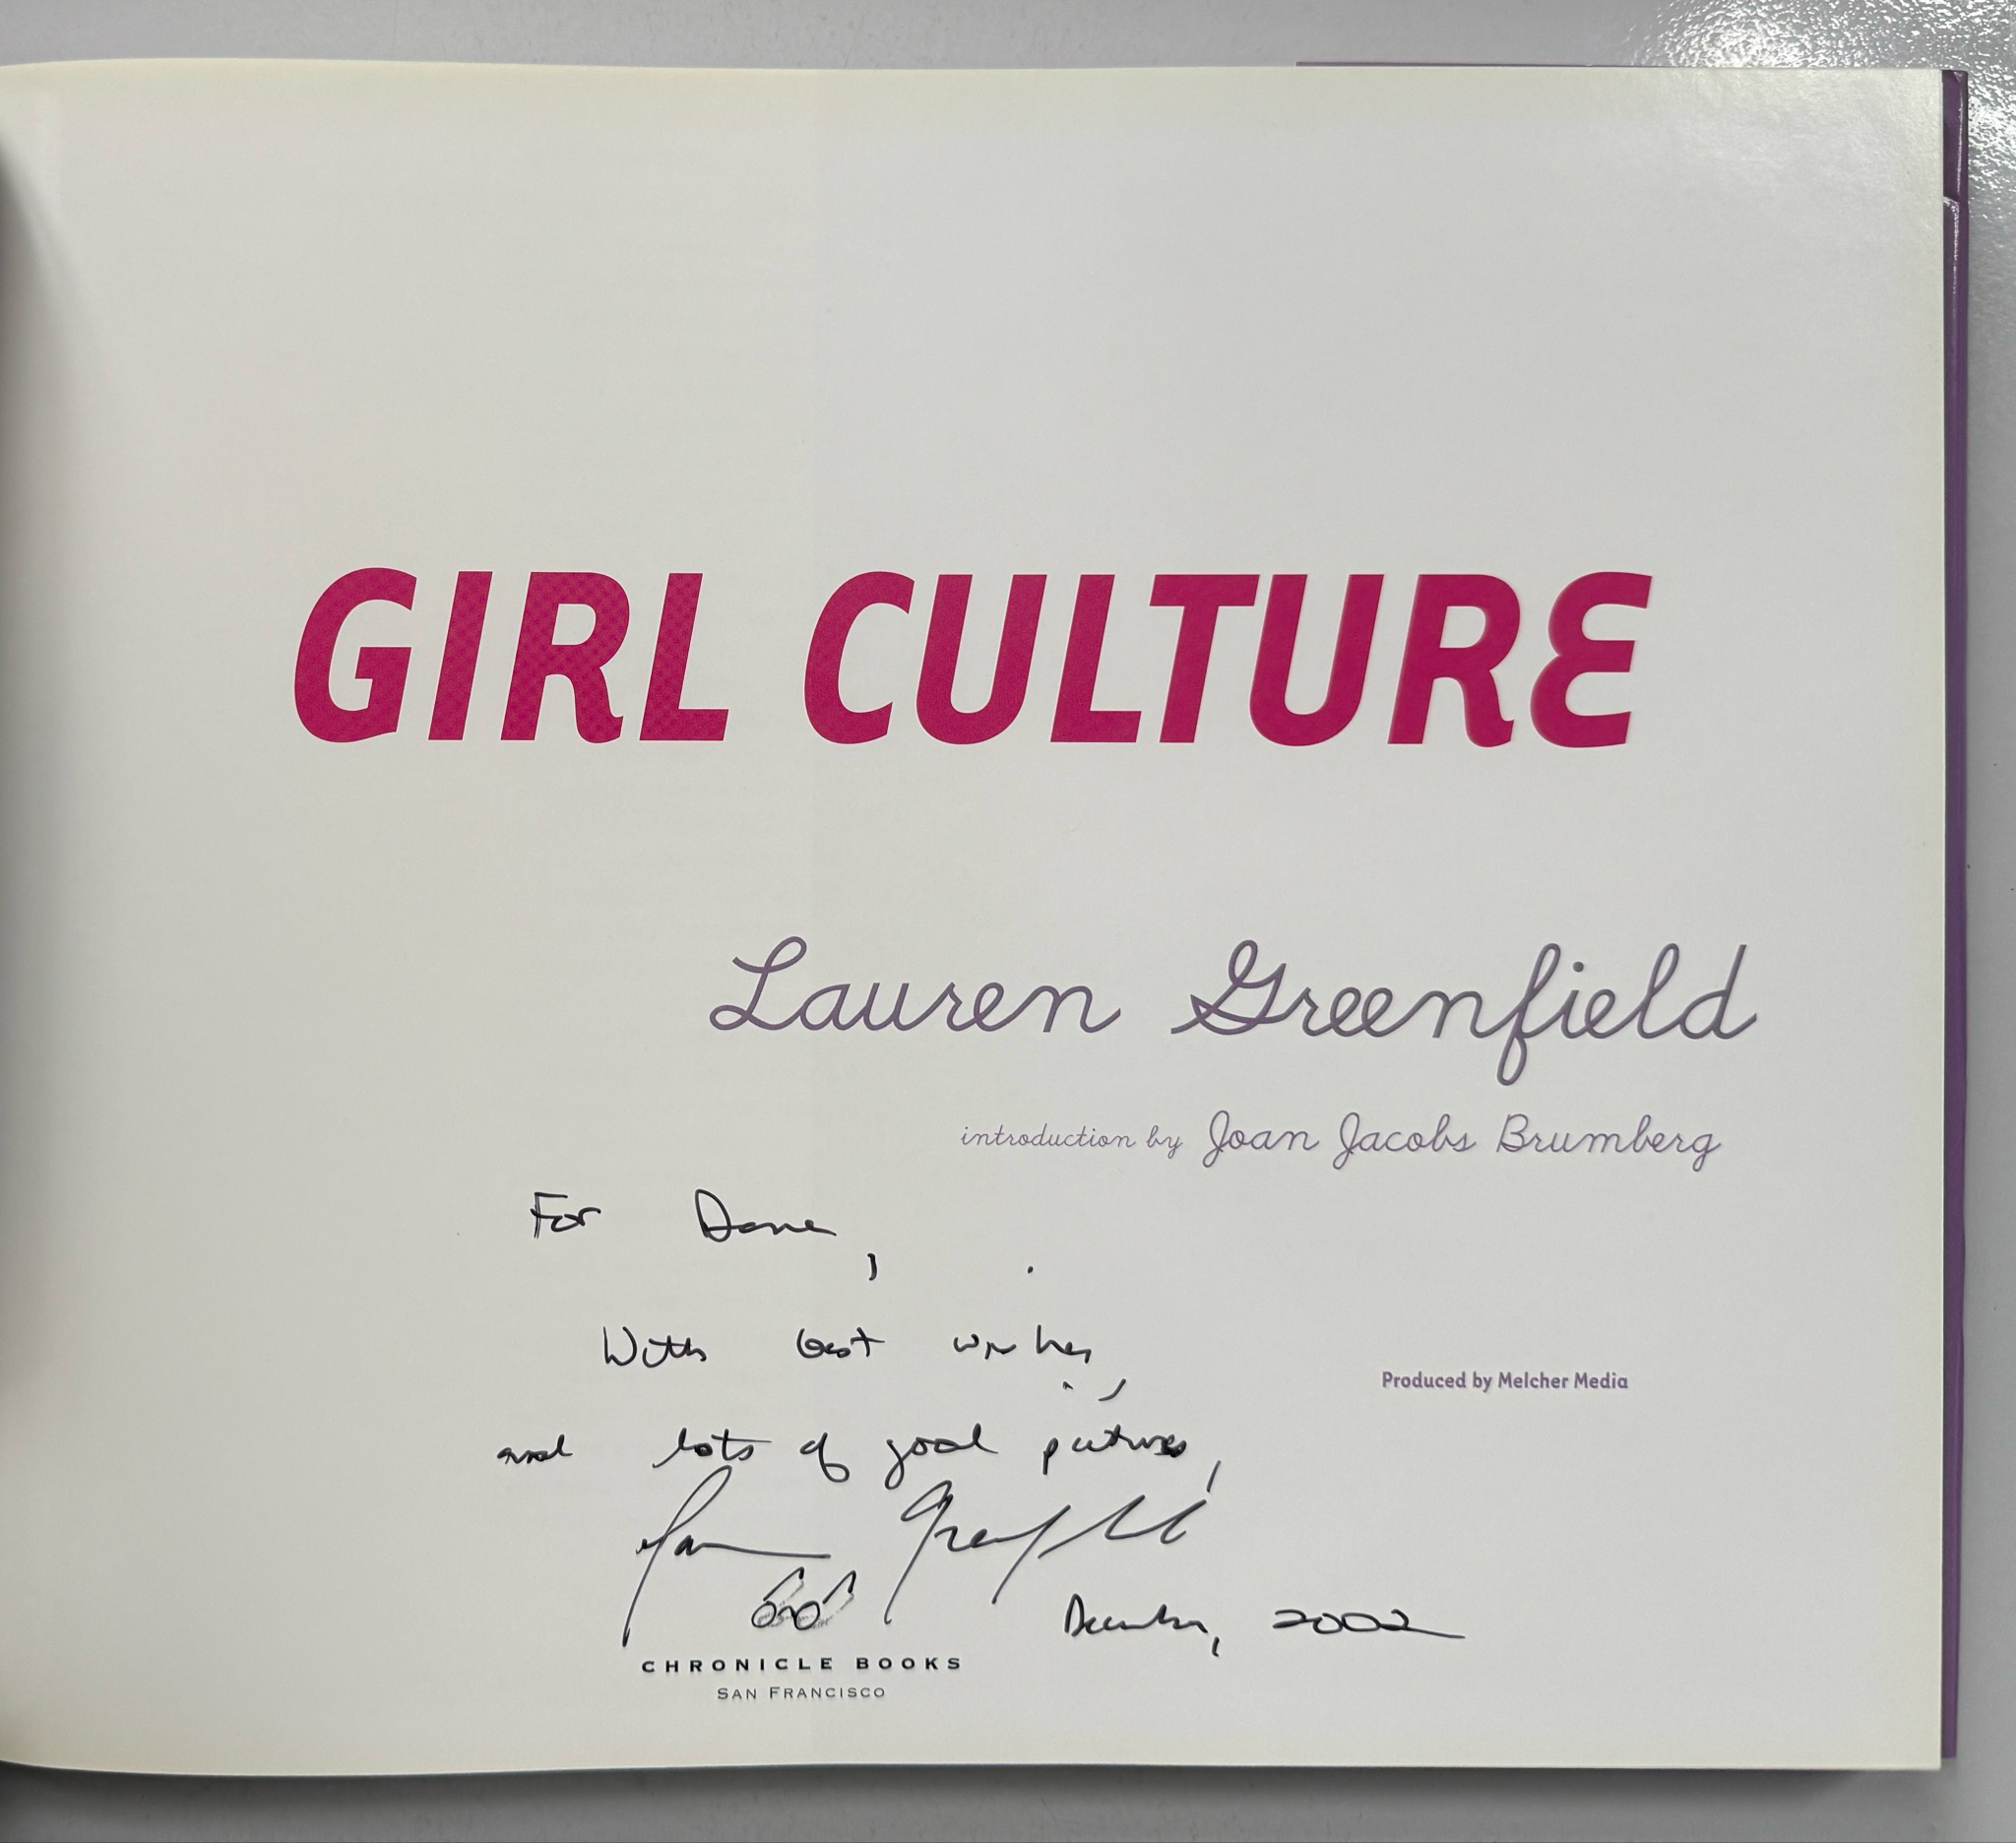 GIRL CULTURE
Lauren Greenfield
introduction by Joan Jacobs Brumberg
For
With best wishes,
Produced by Melcher Media
and lots of good pictures,
Lauren Greenfield
December, 2002
CHRONICLE BOOKS
SAN FRANCISCO